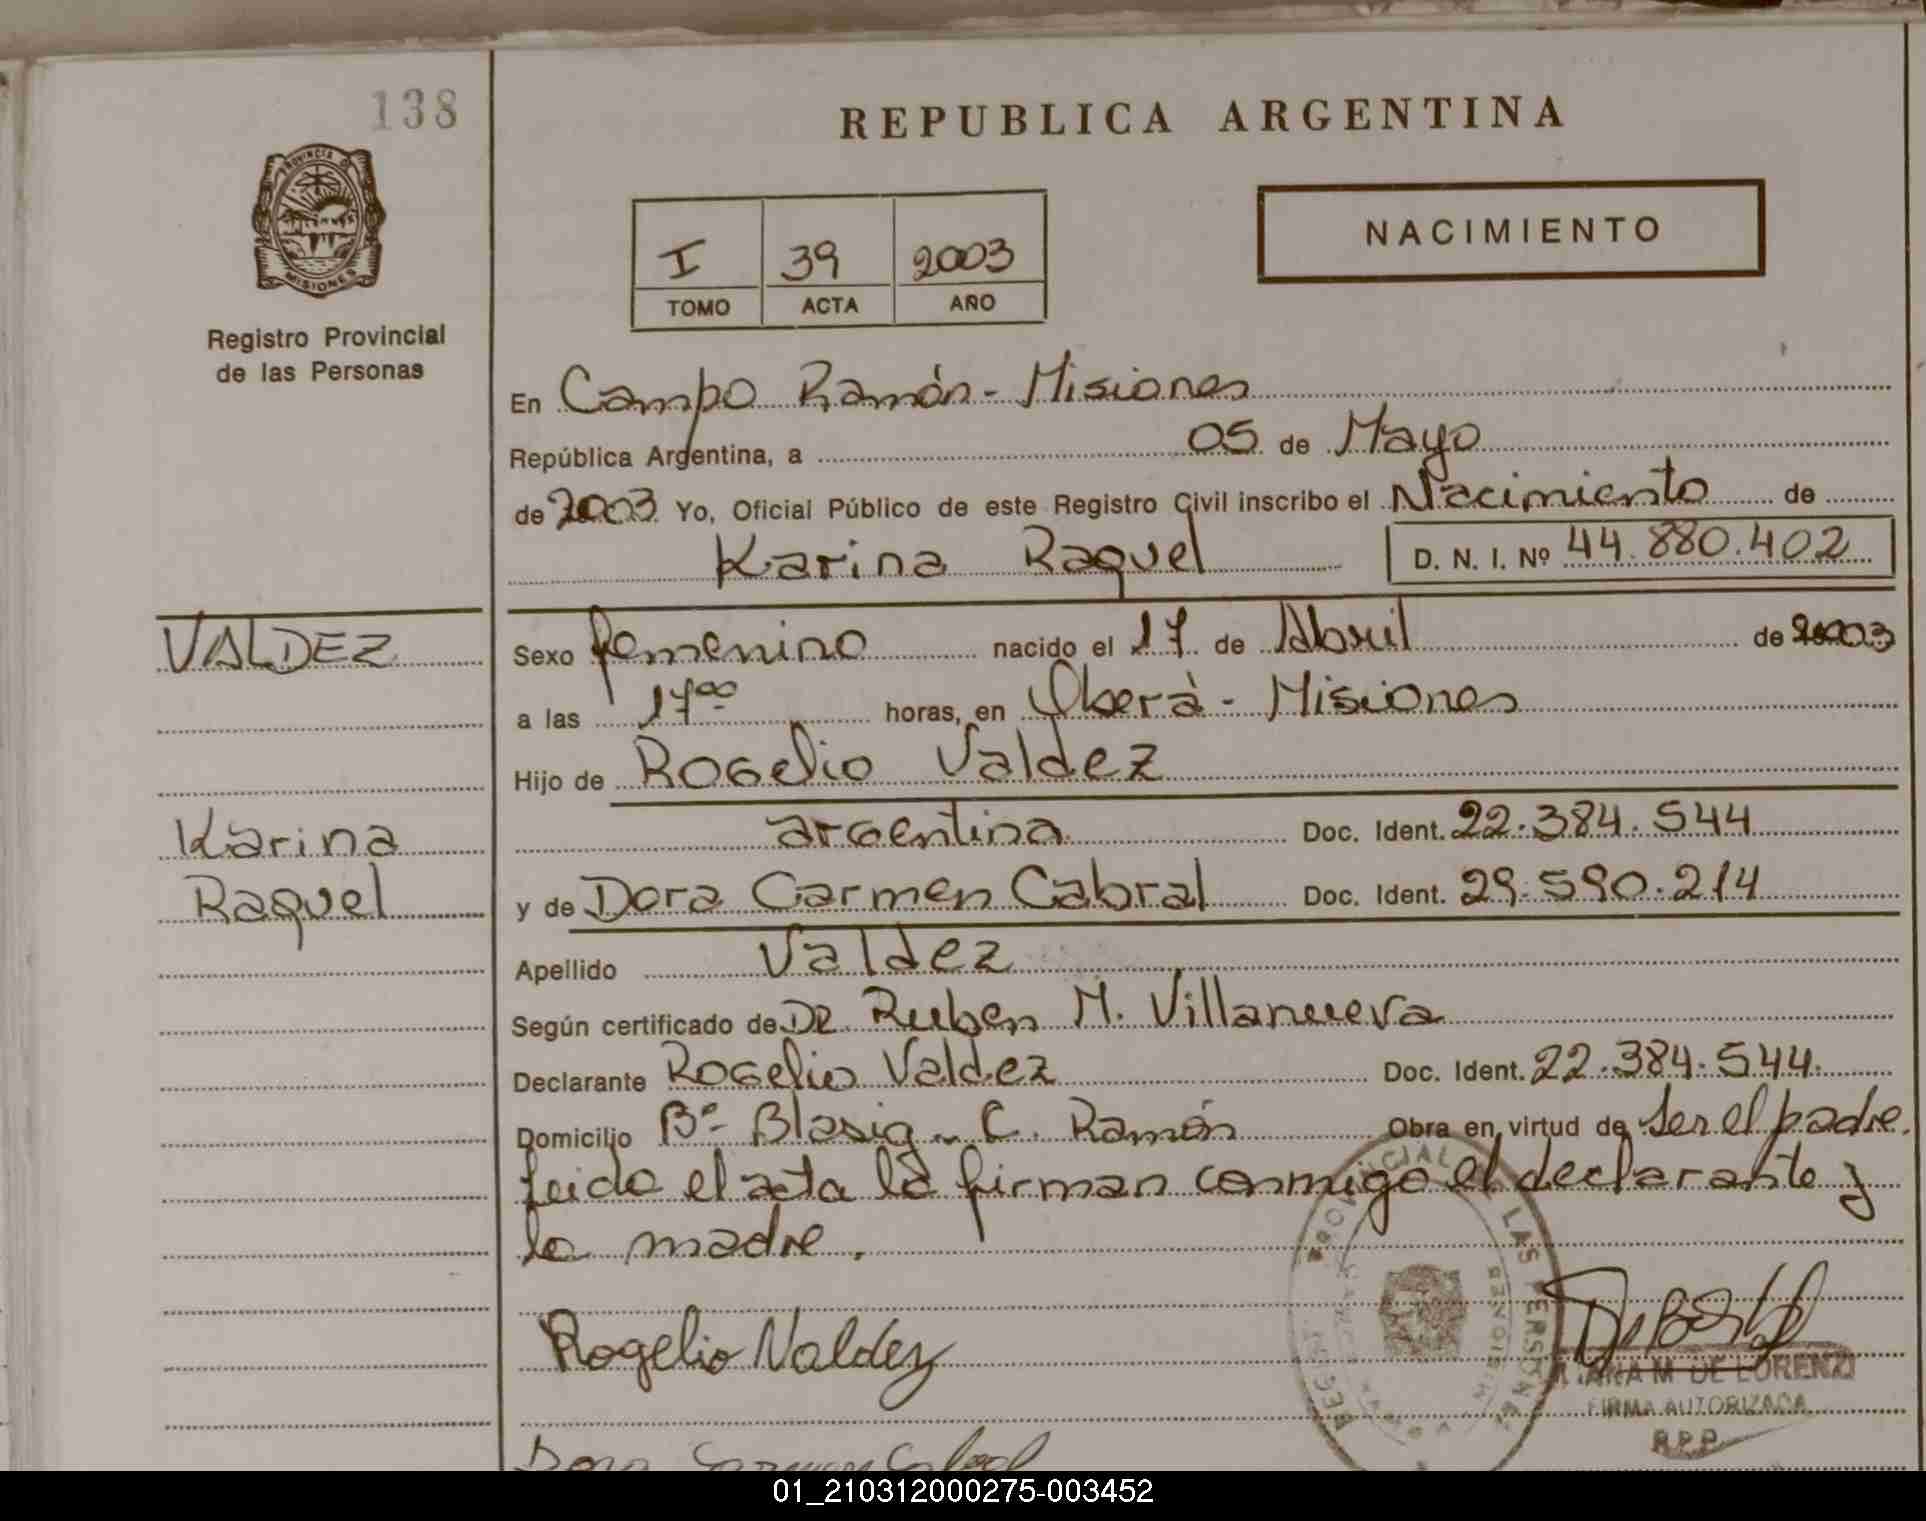 138
REPUBLICA ARGENTINA
PROVINCIA DE
MISIONES
Registro Provincial
de las Personas
I 39 2003
TOMO ACTA AÑO
NACIMIENTO
En Campo Ramón - Misiones
República Argentina, a 05 de Mayo
de 2003 Yo, Oficial Público de este Registro Civil inscribo el Nacimiento de
Karina Raquel D. N. I. Nº 44.880.402
VALDEZ
Karina
Raquel
Sexo femenino nacido el 17 de Abril de 2003
a las 17 00 horas, en Oberá - Misiones
Hijo de Rogelio Valdez
argentina Doc. Ident. 22.384.544
y de Dora Carmen Cabral Doc. Ident. 29.590.214
Apellido Valdez
Según certificado de DR. Ruben M. Villanueva
Declarante Rogelio Valdez Doc. Ident. 22.384.544.
Domicilio Bº Blasig - C. Ramón Obra en virtud de ser el padre.
Leida el acta la firman conmigo el declarante y
la madre.
Rogelio Valdez
PROVINCIAL LAS PERSONAS
MISIONES
M. DE LORENZI
FIRMA AUTORIZADA
R.P.P.
Dora Carmen Cabral
01_210312000275-003452